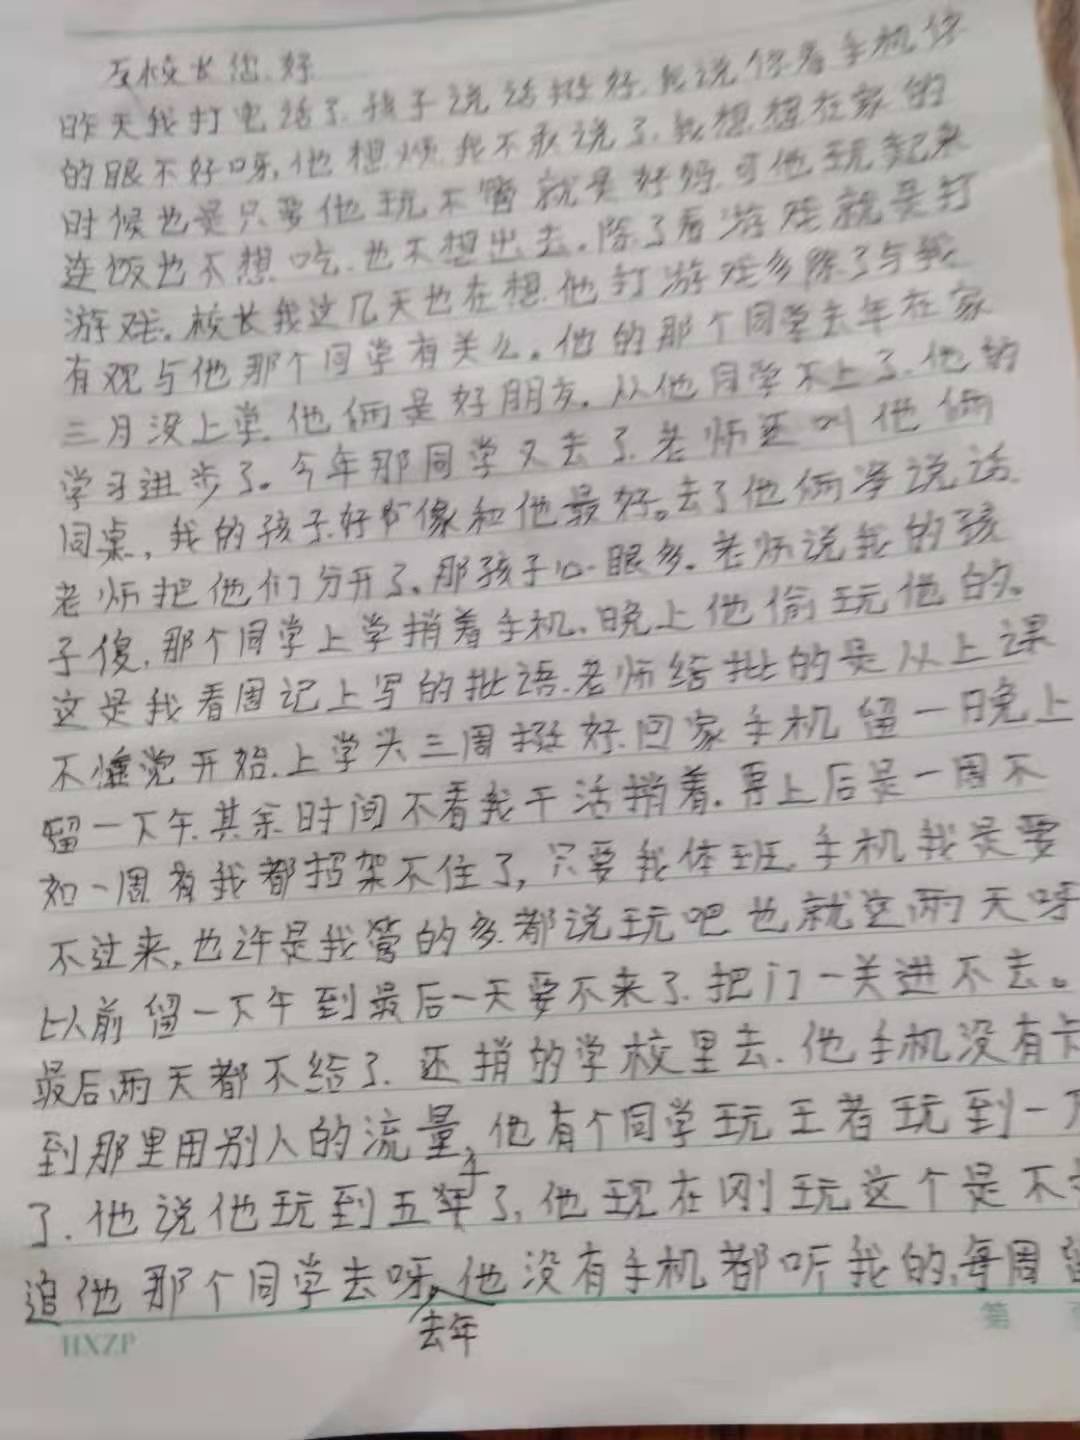 校长您好
昨天我打电话了.孩子说话挺好.我说你看手机你
的眼不好呀.他想烦.我不敢说了.我想想在家的
时候也是只要他玩不管就是好妈.可他玩起来
连饭也不想吃.也不想出去.除了看游戏就是打
游戏.校长我这几天也在想.他打游戏多除了与我
有观与他那个同学有关么。他的那个同学去年在家
三月没上学.他俩是好朋友.从他同学不上了.他的
学习进步了。今年那同学又去了.老师还叫他俩
同桌,我的孩子好像和他最好。去了他俩净说话.
老师把他们分开了.那孩子心眼多.老师说我的孩
子傻.那个同学上学捎着手机.晚上他偷玩他的.
这是我看周记上写的批语.老师给批的是从上课
不睡觉开始.上学头三周挺好.回家手机留一晚上
留一下午.其余时间不看我干活捎着.再上后是一周不
如一周.我都招架不住了,只要我体班.手机我是要
不过来,也许是我管的多.都说玩吧也就这两天呀
以前留一下午到最后一天要不来了.把门一关进不去。
最后两天都不给了.还捎的学校里去.他手机没有卡
到那里用别人的流量,他有个同学玩王者玩到一万
了.他说他玩到五千了,他现在刚玩这个是不
追他那个同学去呀.去年他没有手机都听我的.每周留
HXZP
第